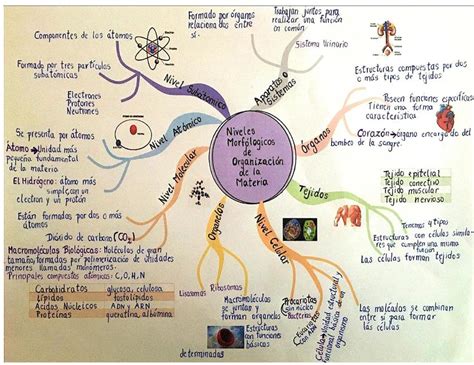 Niveles
Morfológicos
de
Organización
de la
Materia
Nivel Subatomico
Componentes de los átomos
Formado por tres partículas
subatómicas
Electrones
Protones
Neutrones
Nivel Atómico
Se presenta por átomos
Átomo→Unidad más
pequeña fundamental
de la materia
El Hidrógeno: átomo más
simple, con un
electron y un protón
Nivel Molecular
Están formados por dos o más
átomos
Dióxido de carbono (CO2)
Macromoléculas Biológicas: Moléculas de gran
tamaño, formadas por polimerización de unidades
menores llamadas monómeros.
Principales compuestos atómicos: C, O, H, N
Carbohidratos glucosa, celulosa
Lípidos fosfolípidos
Ácidos Nucleicos ADN y ARN
Proteínas queratina, albúmina
Organelos
Lisosomas
Ribosomas
Macromoléculas
se juntas y
forman organelos
Estructuras
con funciones
básicas
determinadas
Nivel Celular
Procariotas
con núcleo
Bacterias
Eucariotas
ADN y ARN
Célula→Unidad estructural y
funcional básica de un
organismo
Las moléculas se combinan
entre si para formar
las células
Tejidos
Tejido epitelial
Tejido conectivo
Tejido muscular
Tejido nervioso
Tenemos 4 tipos
Estructuras con células similares
que cumplen una misma
función
Las células forman tejidos
Órganos
Estructuras compuestas por dos
o más tipos de tejidos
Poseen funciones específicas
Tienen una forma
característica
Corazón→órgano encargado del
bombeo de la sangre.
Aparatos y
Sistemas
Formado por órganos
relacionados entre
sí.
Trabajan juntos para
realizar una función
en común
Sistema Urinario